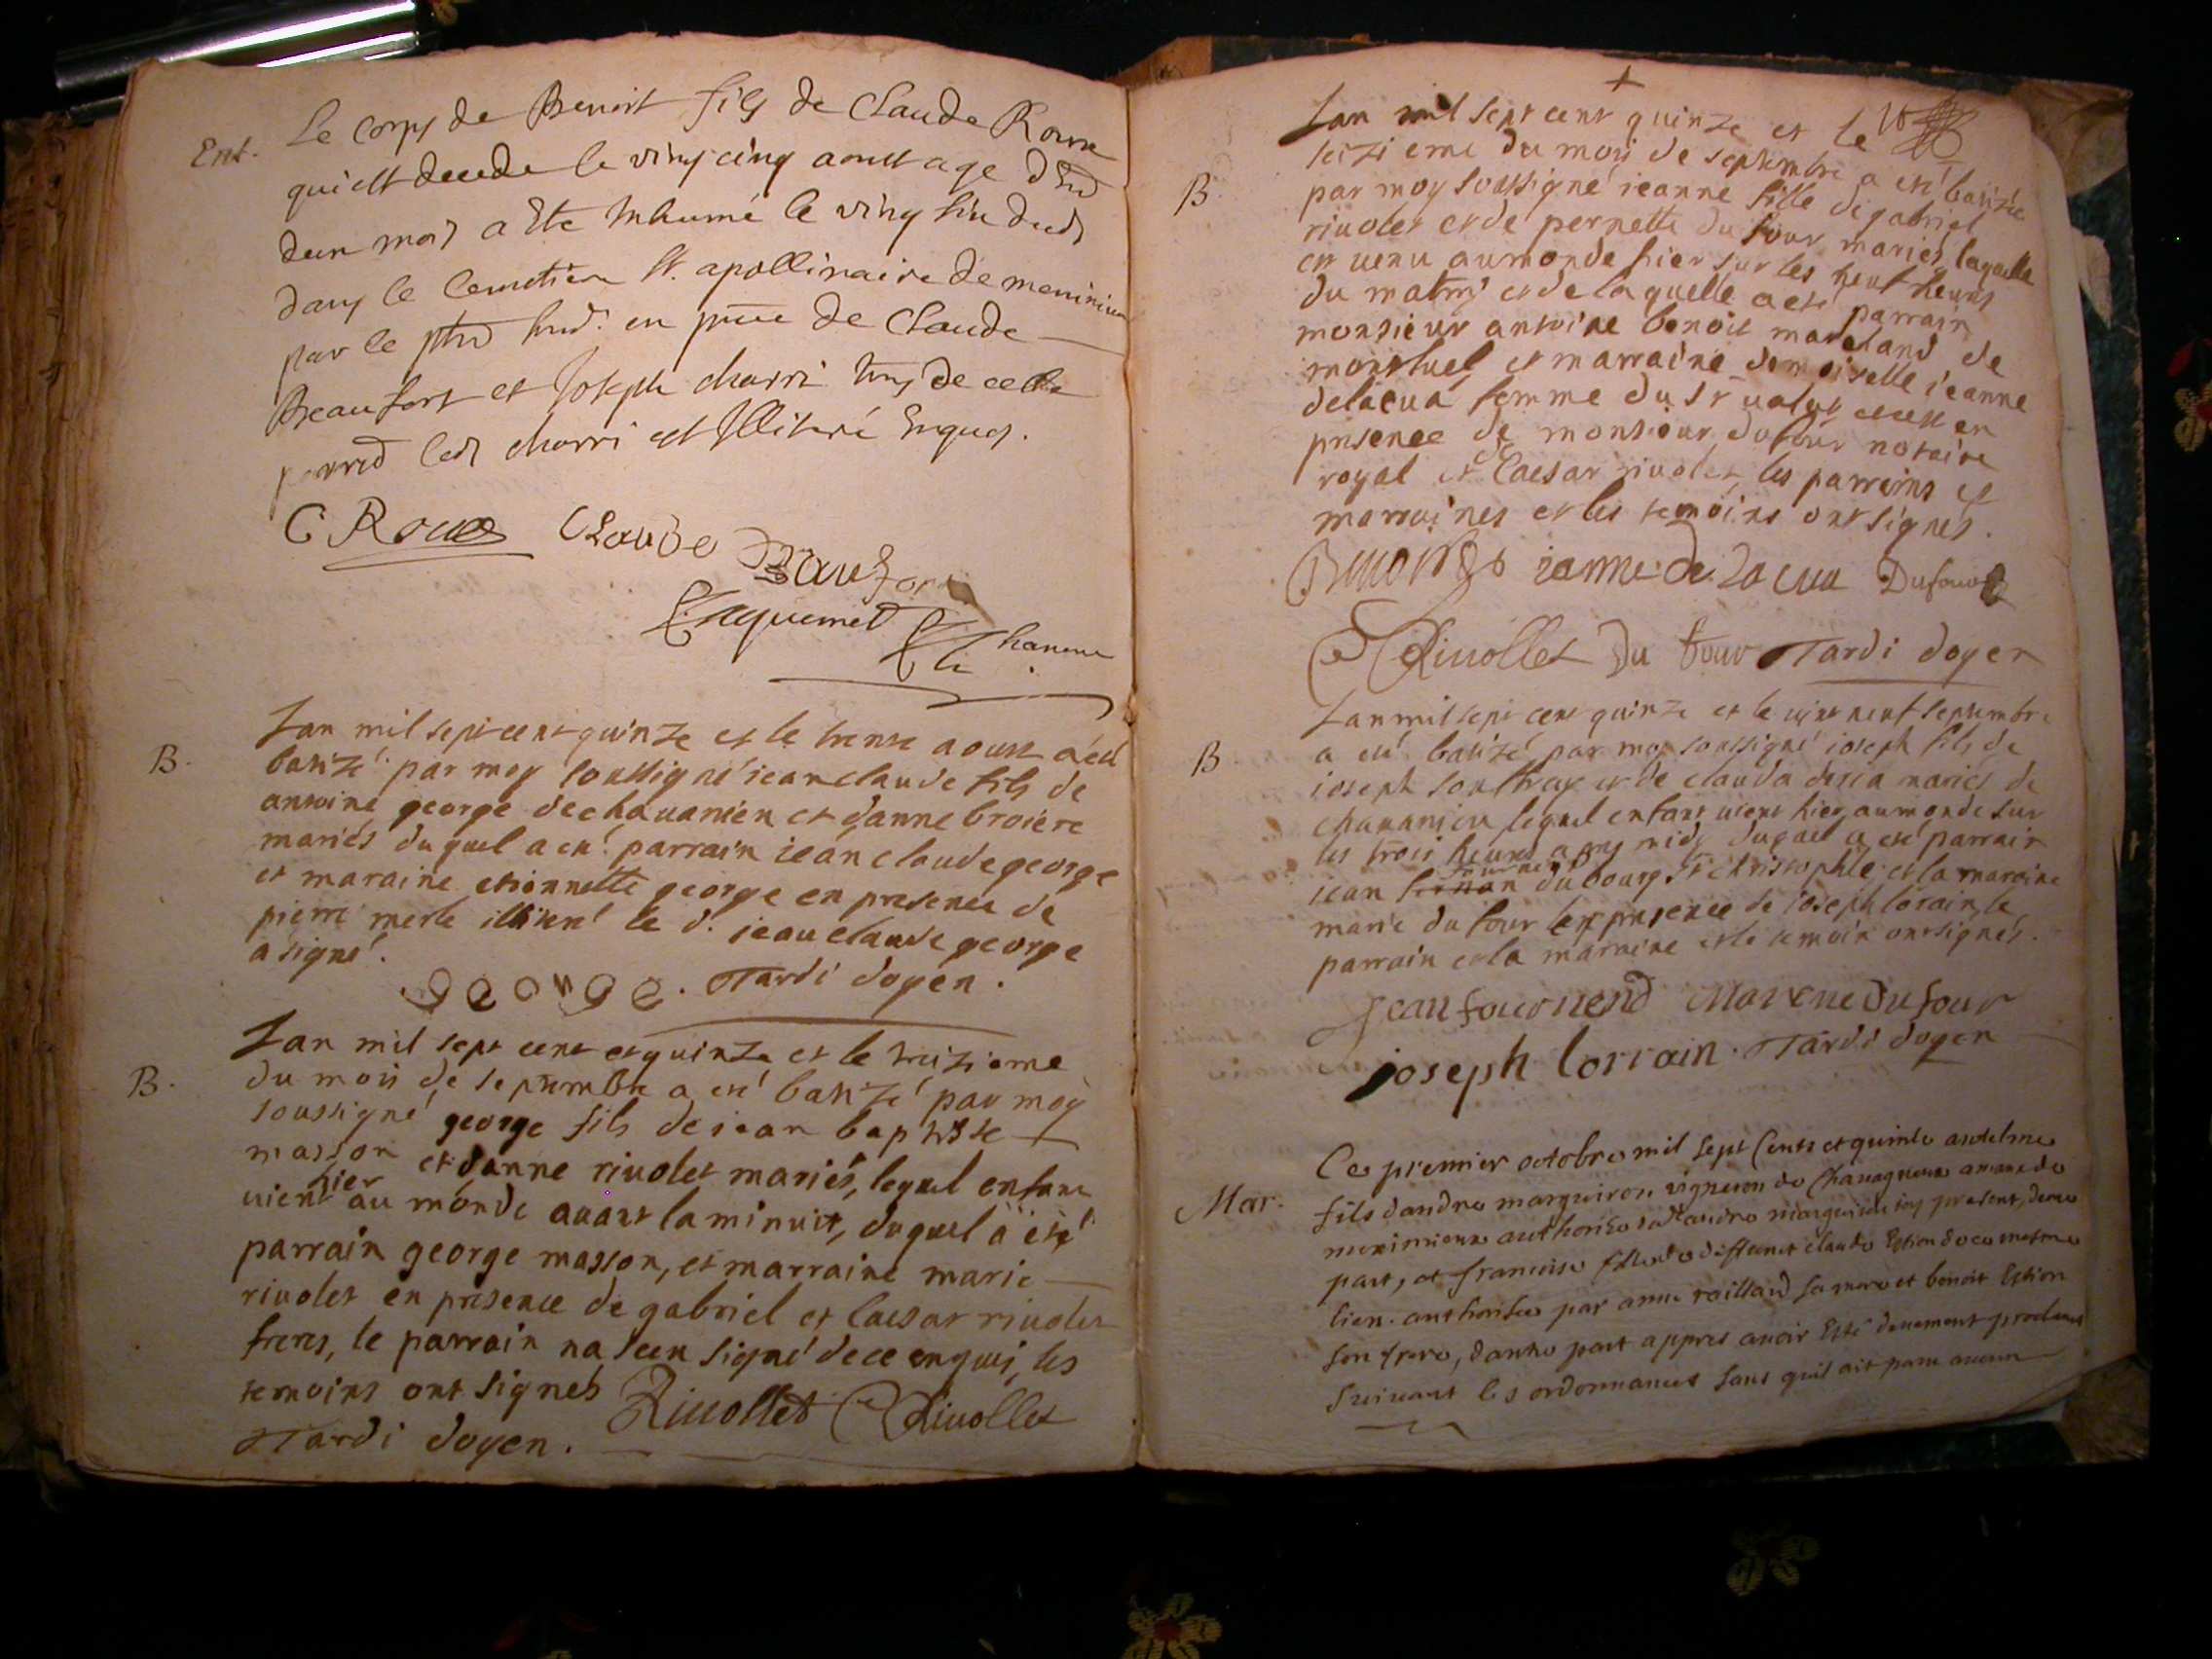 Ent.
Le corps de Benoit fils de Claude Roux
qui est decede le vingt cinq aoust age
dun mois a Ete Inhumé le vingt six dud
dans le Cemetiere St. apollinaire de meximieux
par le en de Claude
Beaufort et Joseph charri de cette
led charri est Illiteré Enquis.
C Roux Claude Baufor
Jaquemet
B.
Lan mil sept cent quinze et le trente aoust a eté
batizé par moy soussigné iean claude fils de
antoine george de chavanieu et d'anne broiere
mariés duquel a eté parrain iean claude george
et maraine etiennette george en presence de
pierre merle illiteré le d. iean claude george
a signé.
george. Tardi doyen.
B.
Lan mil sept cent et quinze et le treizieme
du mois de septembre a eté batizé par moy
soussigné george fils de iean baptiste
masson et d'anne riuolet mariés, lequel enfant
uient hier au monde auant la minuit, duquel a eté
parrain george masson, et marraine marie
riuolet en presence de gabriel et Caesar riuolet
freres, le parrain na sceu signé de ce enquis, les
temoins ont signés Riuollet C Riuollet
Tardi doyen.
Lan mil sept cent quinze et le
seizieme du mois de septembre a eté batizée
B.
par moy soussigné ieanne fille de gabriel
riuolet et de pernette du four mariés, laquelle
est uenu au monde hier sur les neuf heures
du matin et de laquelle a eté parrain
monsieur antoine benoit marchand de
montluel et marraine demoiselle ieanne
delacua femme du Sr en
presence de monsieur dufour notaire
royal et de Caesar riuolet, les parrains et
marraines et les temoins ont signés.
Benoist ianne de la cua Dufour
C Riuollet Du four Tardi doyen
Lan mil sept cent quinze et le vint neuf septembre
B
a eté batizé par moy soussigné ioseph fils de
ioseph et de clauda mariés de
chavanieu lequel enfant uient hier au monde sur
les trois heures apres midy duquel a eté parrain
iean du bourg St christophle et la maraine
marie du four en presence de ioseph lorain, le
parrain et la maraine et le temoin ont signés.
Jean fournend Marene Du four
joseph lorrain. Tardi doyen
Mar.
Ce premier octobre mil sept Cents et quinze
fils dandre marguiron vigneron de Chavagneux
meximieux authorise dud andre marguiron icy present, dune
part, et francoise fille de deffunct claude Estion de ce mesme
lieu. authorisée par anne raillard sa mere et benoit Estion
son frere, dautre part appres avoir Esté deuement proclamés
suivant les ordonnances sans quil ait paru aucun